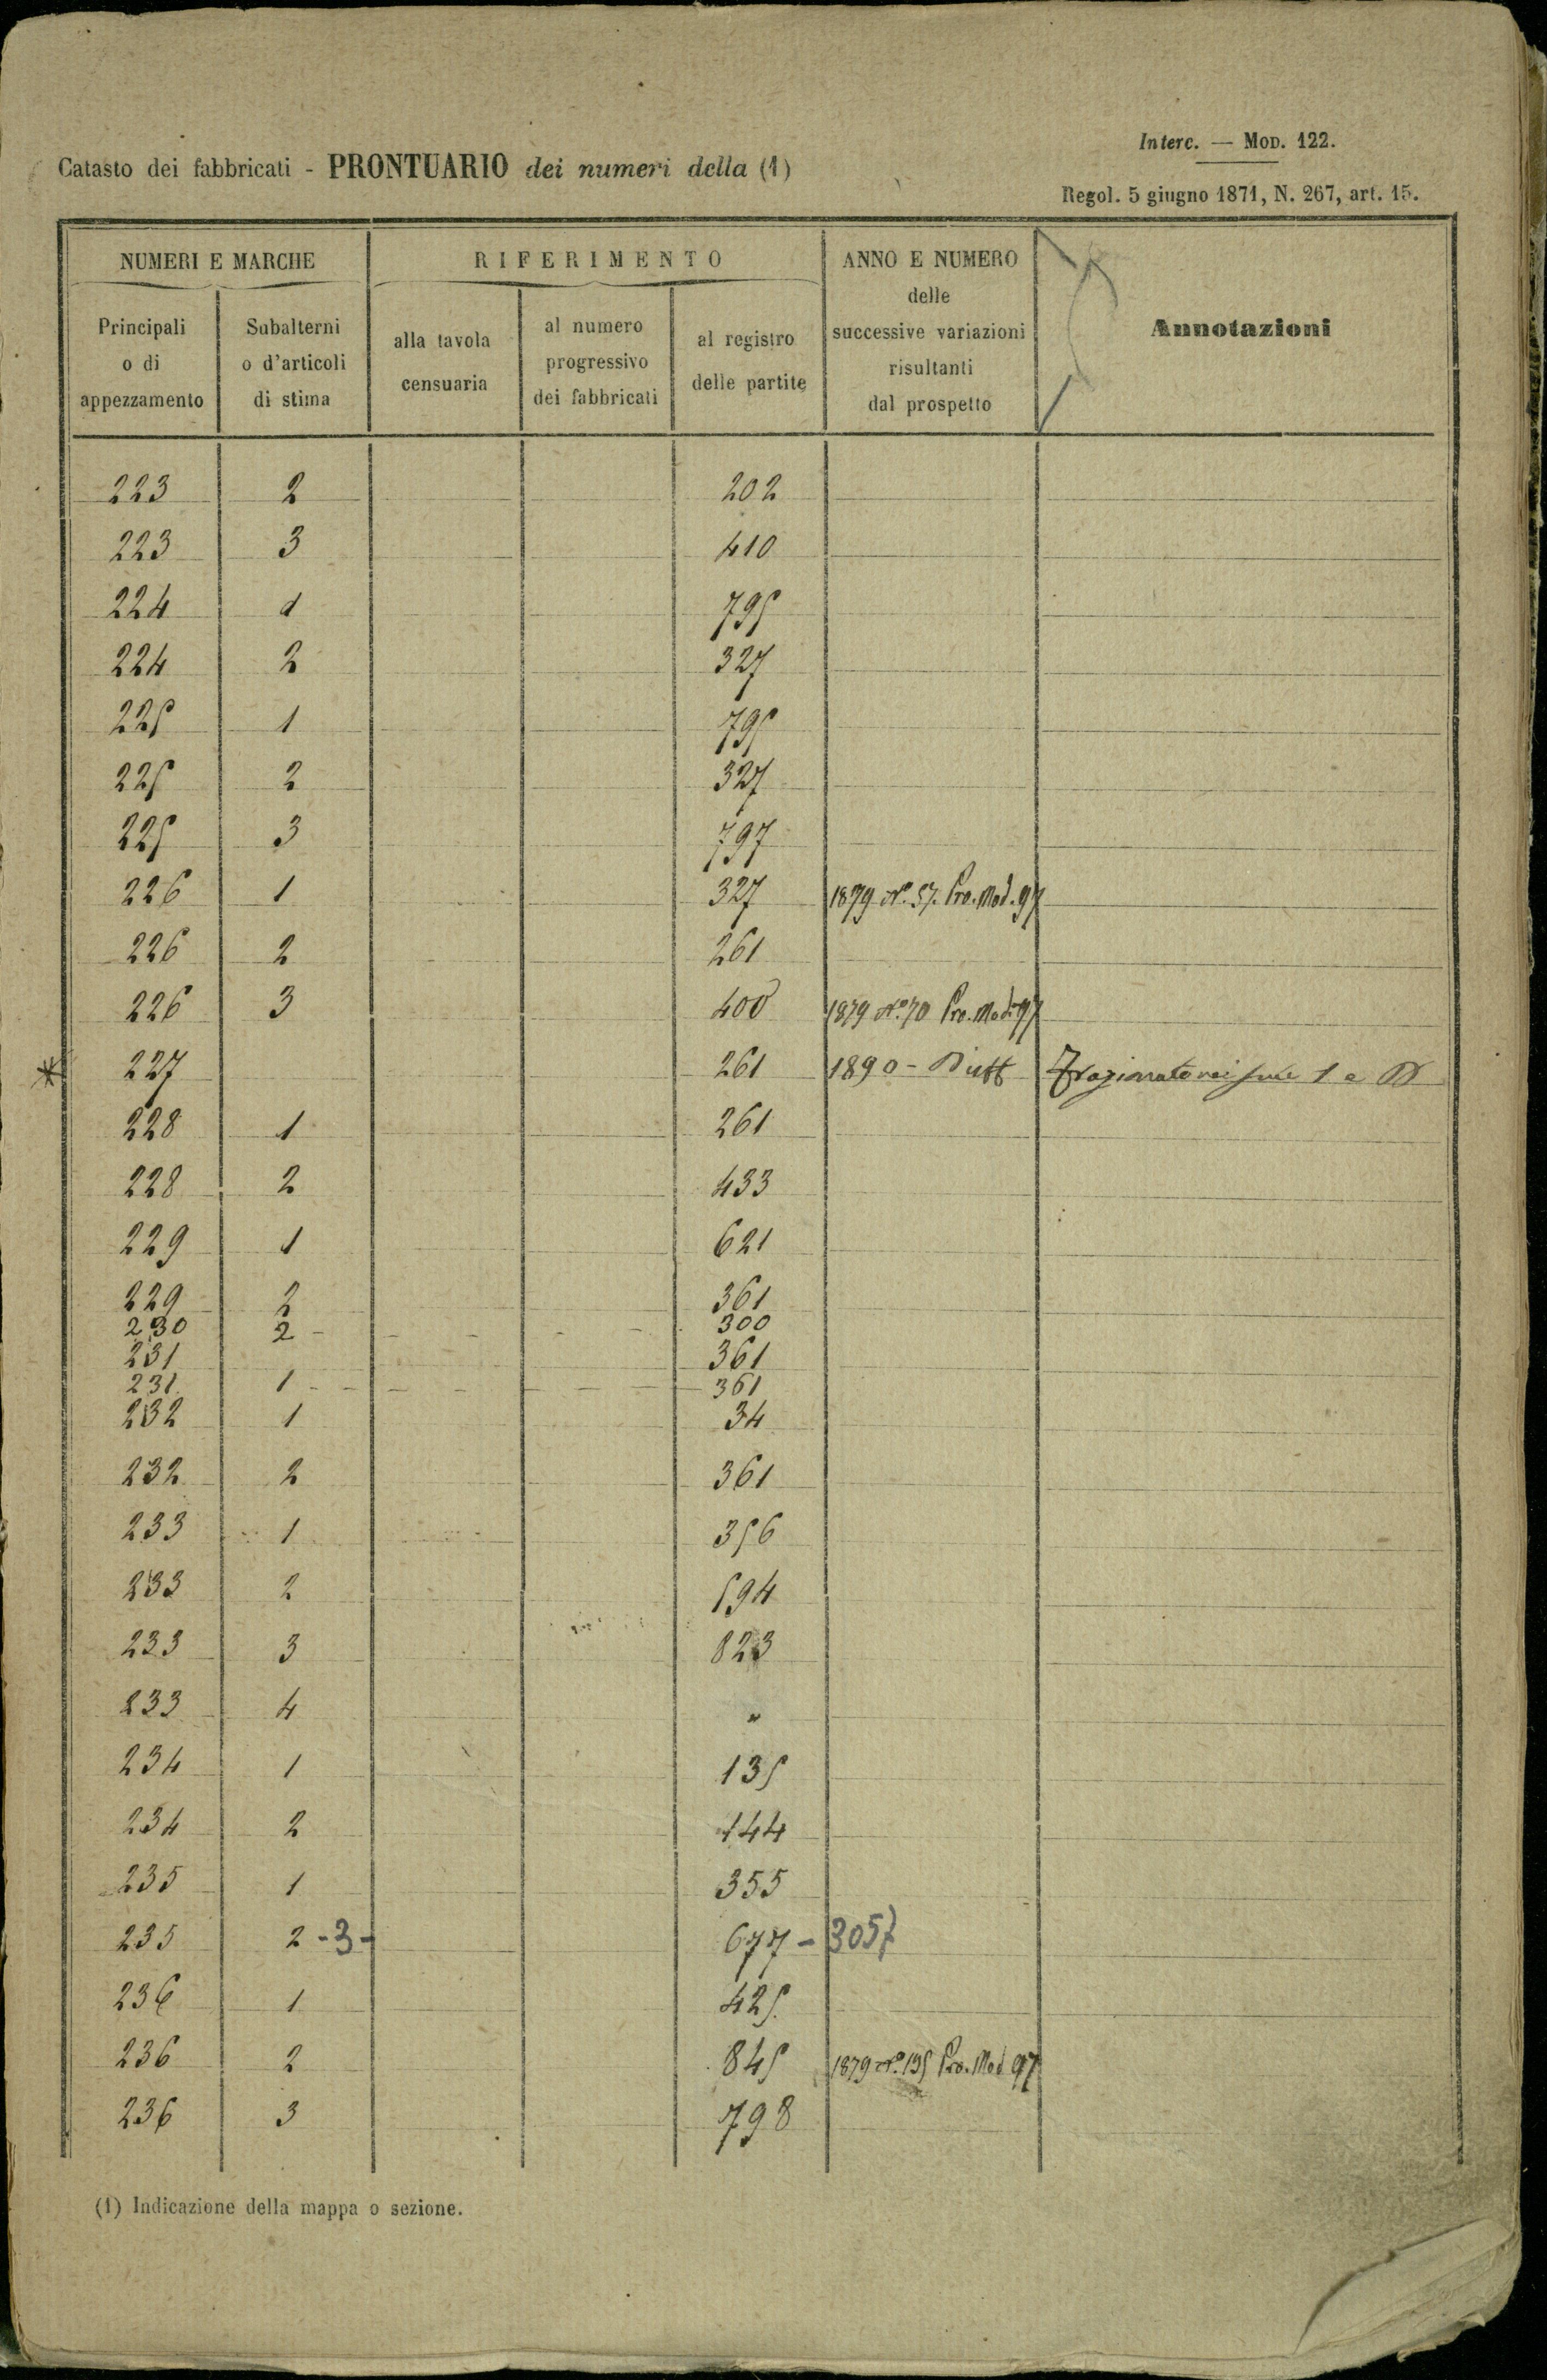 Interc. — Mod. 122.
Catasto dei fabbricati - PRONTUARIO dei numeri della (1)
Regol. 5 giugno 1871, N. 267, art. 15.
NUMERI E MARCHE RIFERIMENTO ANNO E NUMERO delle successive variazioni risultanti dal prospetto Annotazioni
Principali o di appezzamento Subalterni o d'articoli di stima alla tavola censuaria al numero progressivo dei fabbricati al registro delle partite
223 2 202
223 3 410
224 1 795
224 2 327
225 1 795
225 2 327
225 3 797
226 1 327 1879 No. 57. Pro. Mod. 97
226 2 261
226 3 400 1879 No. 70 Pro. Mod. 97
* 227 261 1890 - 1 a
228 1 261
228 2 433
229 1 621
229 2 361
230 2 - - - - - 300
231 361
231 1 - - - - - - - 361
232 1 34
232 2 361
233 1 356
233 2 594
233 3 823
233 4 "
234 1 135
234 2 144
235 1 355
235 2 - 3 - 677 - 3057
236 1 425.
236 2 845 1879 No. 195 Pro. Mod 97
236 3 798
(1) Indicazione della mappa o sezione.